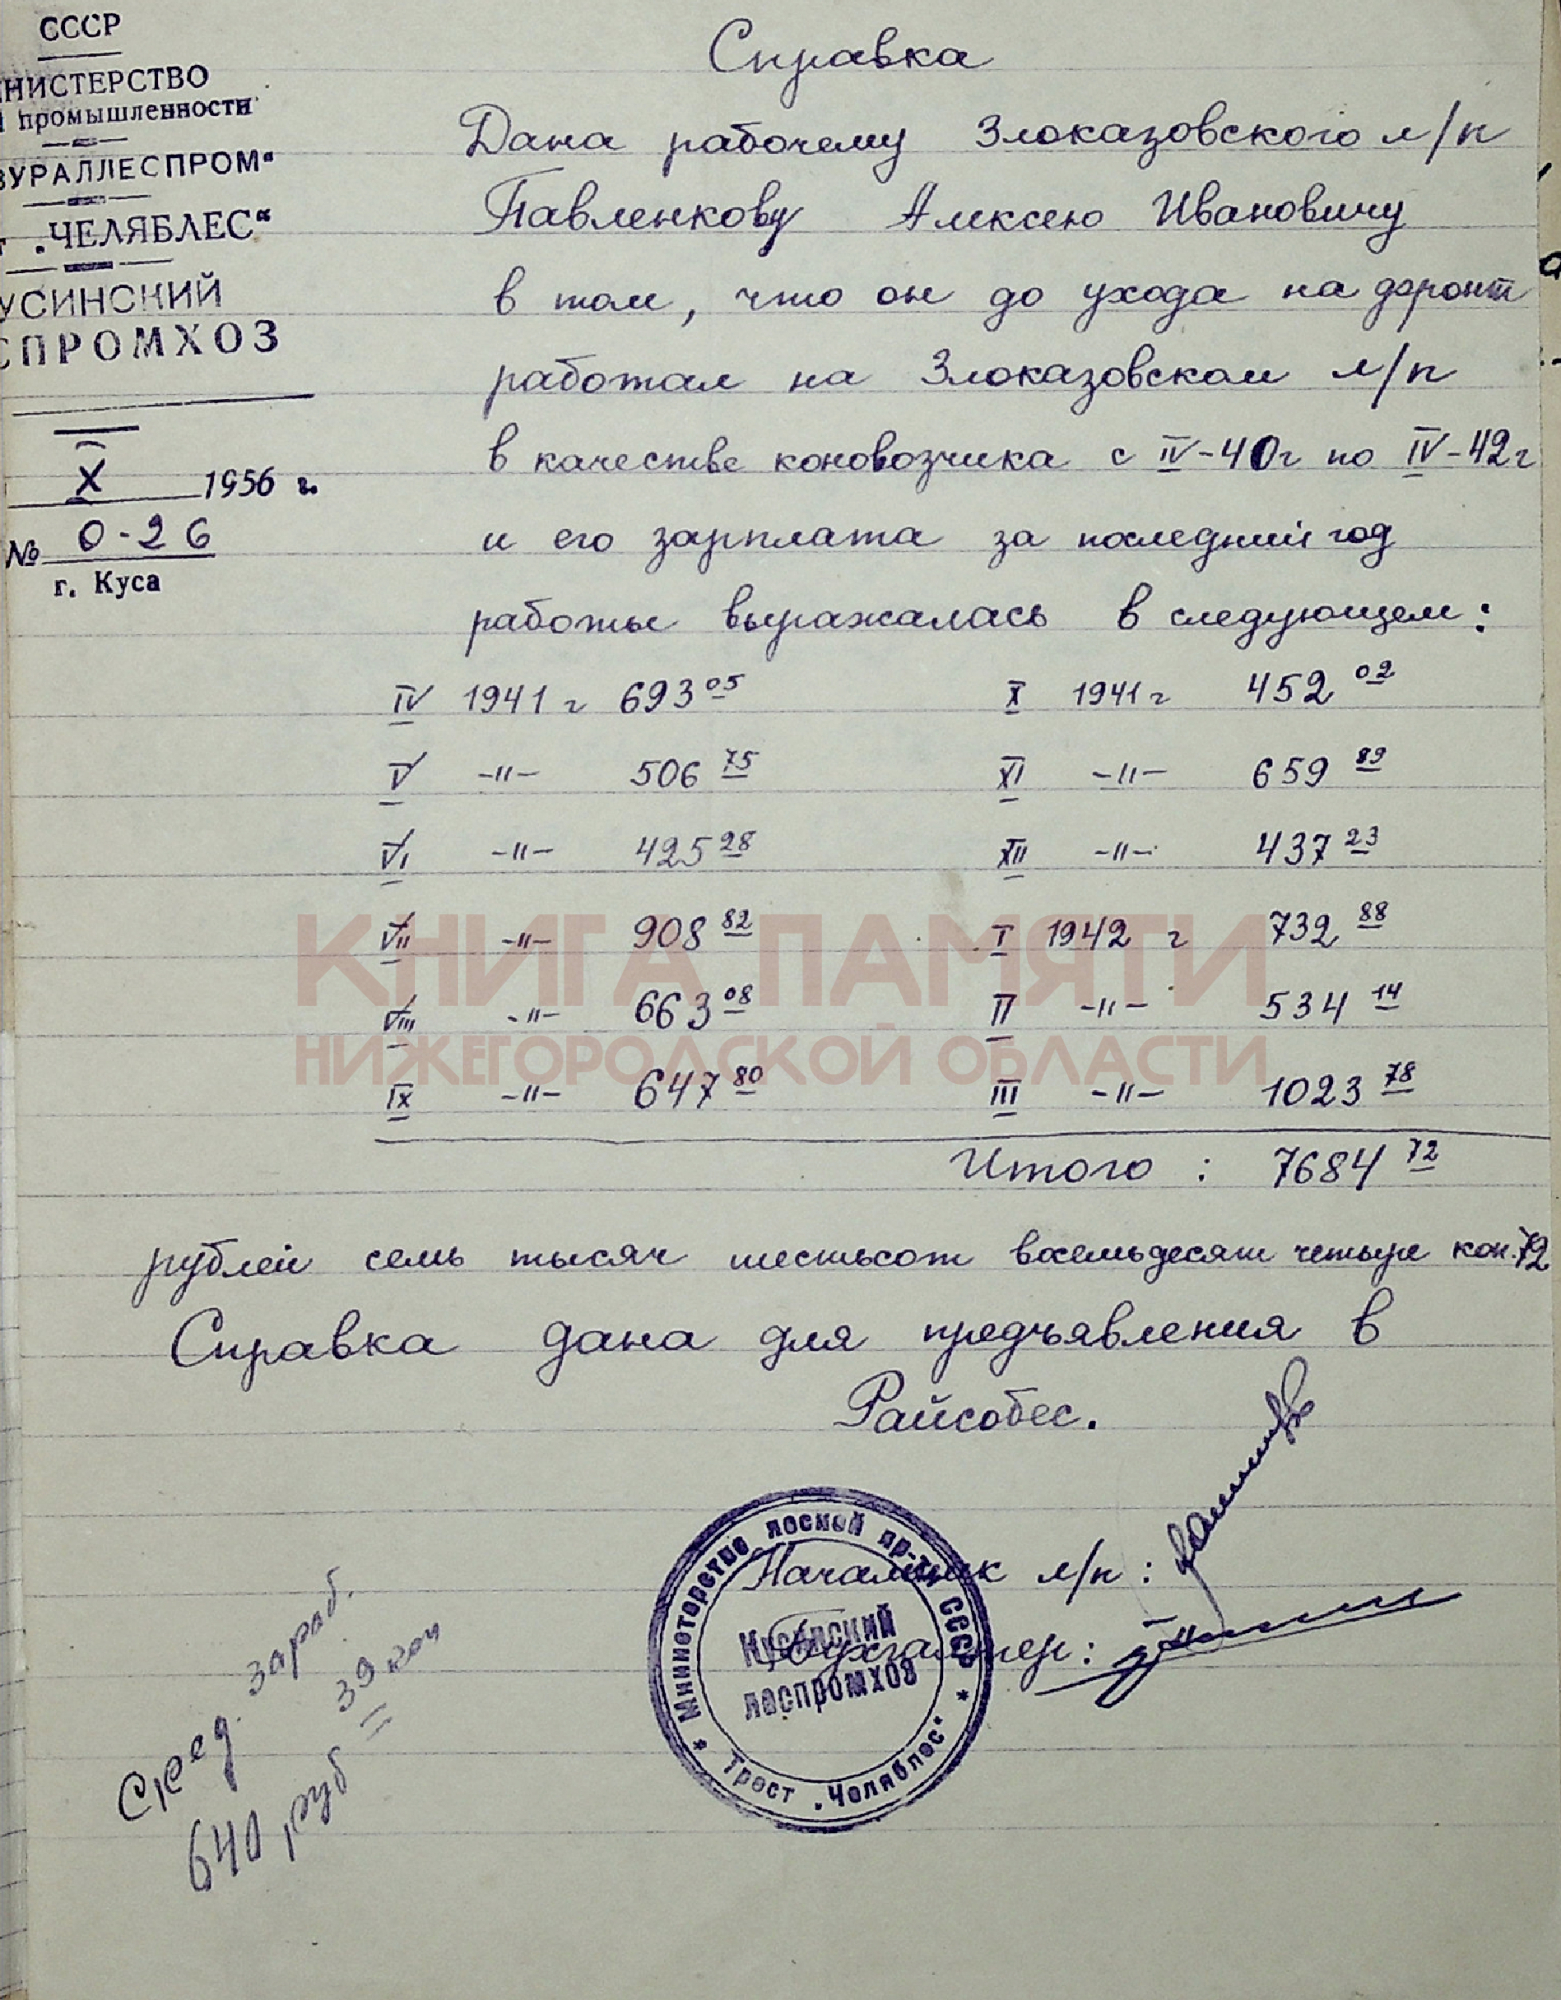 СССР
НИСТЕРСТВО
промышленности
ЗУРАЛЛЕСПРОМ"
"ЧЕЛЯБЛЕС"
УСИНСКИЙ
СПРОМХОЗ
X 1956 г.
№ 0-26
г. Куса
Справка
Дана рабочему Злоказовского л/п
Павленкову Алексею Ивановичу
в том, что он до ухода на фронт
работал на Злоказовском л/п
в качестве коновозчика с IV-40г по IV-42г
и его зарплата за последний год
работы выражалась в следующем:
IV 1941 г 693 05 X 1941 г 452 02
V -"- 506 75 XI -"- 659 89
VI -"- 425 28 XII -"- 437 23
VII -"- 908 82 I 1942 г 732 88
VIII -"- 663 08 II -"- 534 14
IX -"- 647 80 III -"- 1023 78
Итого : 7684 72
рублей семь тысяч шестьсот восемьдесят четыре коп. 72
Справка дана для предъявления в
Райсобес.
Начальник л/п :
Бухгалтер :
Министерство лесной пр-ти СССР
Кусинский
леспромхоз
Трест "Челяблес"
Сред. зараб.
640 руб 39 коп
КНИГА ПАМЯТИ
НИЖЕГОРОДСКОЙ ОБЛАСТИ